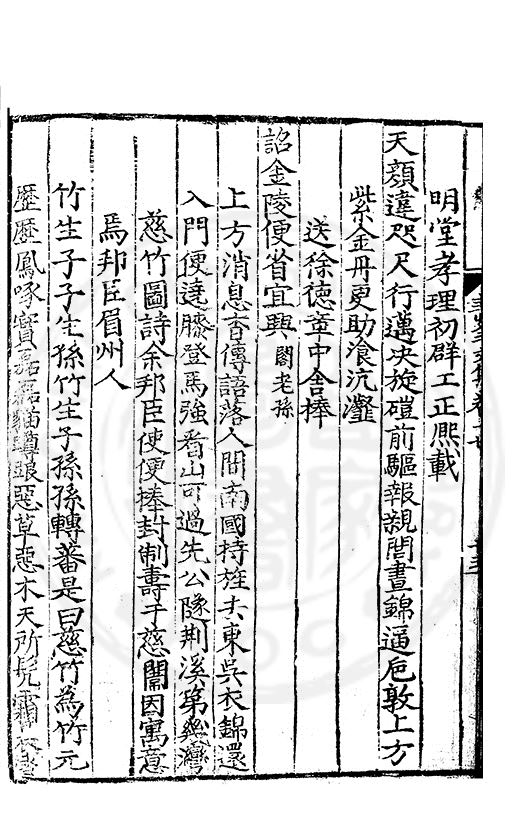 明堂孝理初群工正熈載
天顔違咫尺行邁决旋磑前驅報親閭晝錦逼卮敦上方
紫金丹更助飡沆瀣
送徐德章中舎捧
詔金陵便省宜興閣老孫
上方消息杳傳語落人間南國持㫌去東吳衣錦還
入門便遶膝登馬強看山可過先公隧荆溪第幾灣
慈竹圖詩余邦臣使便捧封制壽于慈闈因寓意
焉邦臣眉州人
竹生子子生孫竹生子孫孫轉蕃是曰慈竹為竹元
歴歴鳳啄實磊磊猫蹲惡草惡木天所髠霜